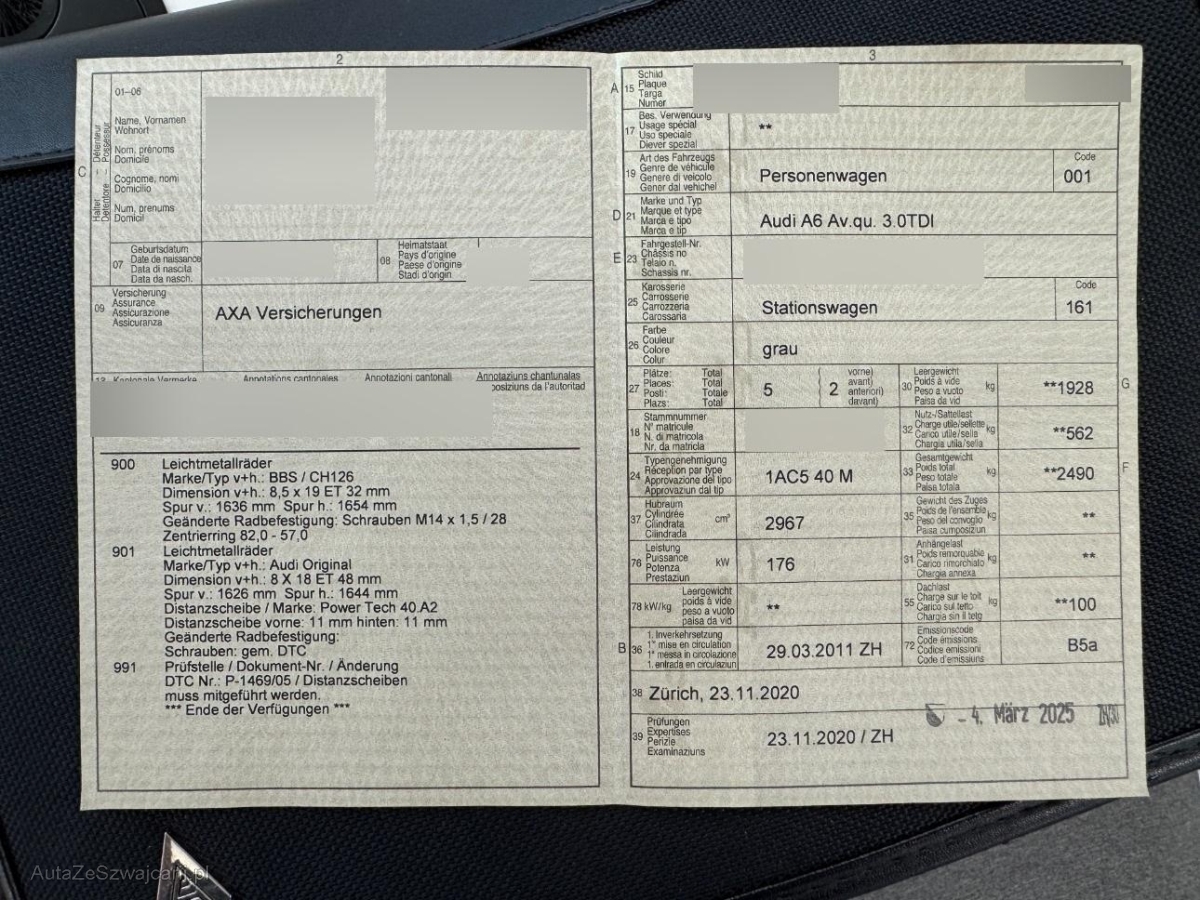 2
01–06
Name, Vornamen
Wohnort
Nom, prénoms
Domicile
Cognome, nomi
Domicilio
Num, prenums
Domicil
C
Halter Détenteur
Detentore Possessur
07
Geburtsdatum
Date de naissance
Data di nascita
Data da nasch.
08
Heimatstaat
Pays d'origine
Paese d'origine
Stadi d'origin
09
Versicherung
Assurance
Assicurazione
Assicuranza
AXA Versicherungen
Kantonale Vermerke Annotations cantonales Annotazioni cantonali Annotaziuns chantunalas
posiziuns da l'autoritad
900 Leichtmetallräder
Marke/Typ v+h.: BBS / CH126
Dimension v+h.: 8,5 x 19 ET 32 mm
Spur v.: 1636 mm Spur h.: 1654 mm
Geänderte Radbefestigung: Schrauben M14 x 1,5 / 28
Zentrierring 82,0 - 57,0
901 Leichtmetallräder
Marke/Typ v+h.: Audi Original
Dimension v+h.: 8 X 18 ET 48 mm
Spur v.: 1626 mm Spur h.: 1644 mm
Distanzscheibe / Marke: Power Tech 40.A2
Distanzscheibe vorne: 11 mm hinten: 11 mm
Geänderte Radbefestigung:
Schrauben: gem. DTC
991 Prüfstelle / Dokument-Nr. / Änderung
DTC Nr.: P-1469/05 / Distanzscheiben
muss mitgeführt werden.
*** Ende der Verfügungen ***
3
A 15
Schild
Plaque
Targa
Numer
17
Bes. Verwendung
Usage spécial
Uso speciale
Diever spezial
**
19
Art des Fahrzeugs
Genre de véhicule
Genere di veicolo
Gener dal vehichel
Personenwagen
Code
001
D 21
Marke und Typ
Marque et type
Marca e tipo
Marca e tip
Audi A6 Av.qu. 3.0TDI
E 23
Fahrgestell-Nr.
Châssis no
Telaio n.
Schassis nr.
25
Karosserie
Carrosserie
Carrozzeria
Carossaria
Stationswagen
Code
161
26
Farbe
Couleur
Colore
Colur
grau
27
Plätze: Total
Places: Total
Posti: Totale
Plazs: Total
5
2
vorne)
avant)
anteriori)
davant)
30
Leergewicht
Poids à vide
Peso a vuoto
Paisa da vid
kg
**1928
G
18
Stammnummer
N° matricule
N. di matricola
Nr. da matricla
32
Nutz-/Sattellast
Charge utile/sellette
Carico utile/sella
Chargia utila/sella
kg
**562
24
Typengenehmigung
Réception par type
Approvazione del tipo
Approvaziun dal tip
1AC5 40 M
33
Gesamtgewicht
Poids total
Peso totale
Paisa totala
kg
**2490
F
37
Hubraum
Cylindrée
Cilindrata
Cilindrada
cm³
2967
35
Gewicht des Zuges
Poids de l'ensemble
Peso del convoglio
Paisa cumposiziun
kg
**
76
Leistung
Puissance
Potenza
Prestaziun
kW
176
31
Anhängelast
Poids remorquable
Carico rimorchiato
Chargia annexa
kg
**
78 kW/kg
Leergewicht
poids à vide
peso a vuoto
paisa da vid
**
55
Dachlast
Charge sur le toit
Carico sul tetto
Chargia sin il tetg
kg
**100
B 36
1. Inverkehrsetzung
1re mise en circulation
1a messa in circolazione
1. entrada en circulaziun
29.03.2011 ZH
72
Emissionscode
Code émissions
Codice emissioni
Code d'emissiuns
B5a
38 Zürich, 23.11.2020
- 4. März 2025
39
Prüfungen
Expertises
Perizie
Examinaziuns
23.11.2020 / ZH
AutaZeSzwajcarii.pl